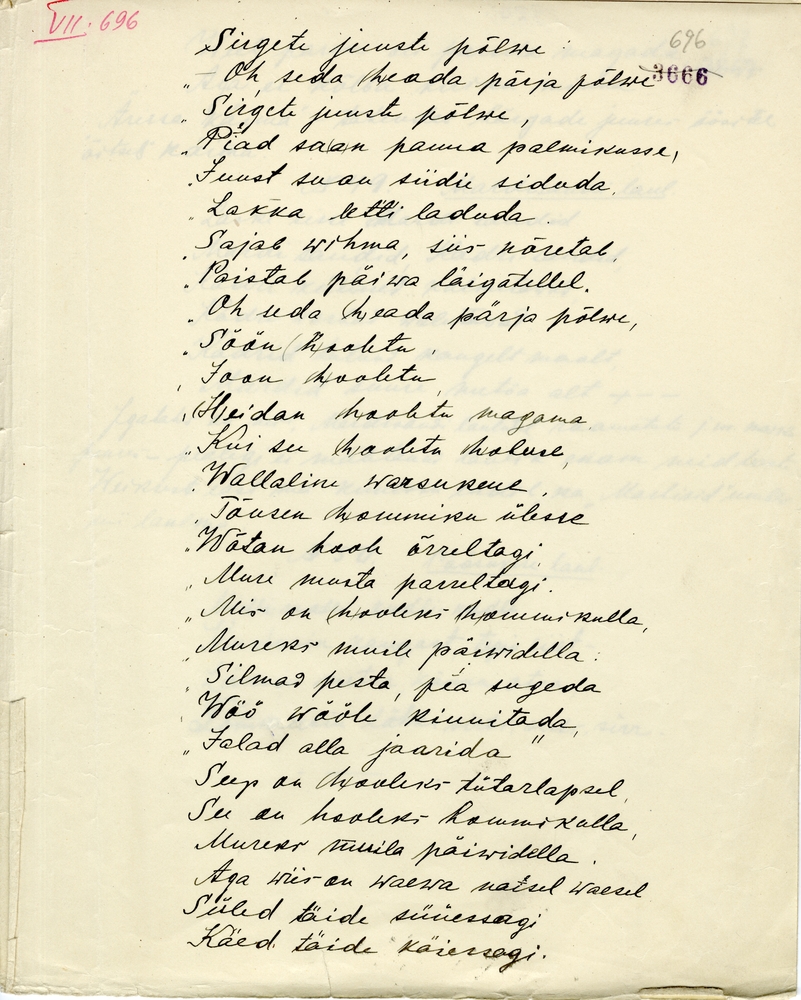 VII. 696
696
3666
Sirgete juuste põlwe :
"– Oh, seda (h)eada pärja põlwe
" Sirgete juuste põlwe,
" Piad saa(n) panna palmikusse,
" Juust saan siidie siduda,
" Lakka letti laduda.
" Sajab wihma, siis nõretab,
" Paistab päiwa läigatellel.
" Oh seda (h)eada pärja põlwe,
" Söön (h)ooletu,
" Joon (h)ooletu,
" (H)eidan (h)ooletu magama.
" Kui see (h)ooletu (h)obuse,
" Wallaline warsukene,
" Tõusen (h)ommiku ülesse
" Wõtan hoole õrreltagi,
" Mure musta parreltagi.
" Mis on (h)ooleks (h)ommikulla,
" Mureks muile päiwidella :
" Silmad pesta, pea sugeda
" Wöö wööle kinnitada,
" Jalad alla jaarida "
Seep on (h)ooleks tütarlapsel,
See on hooleks hommikulla,
Mureks muila päiwidella.
Aga wiis on waewa naesel waesel
Süled täide süüessagi
Käed täide käiessagi.